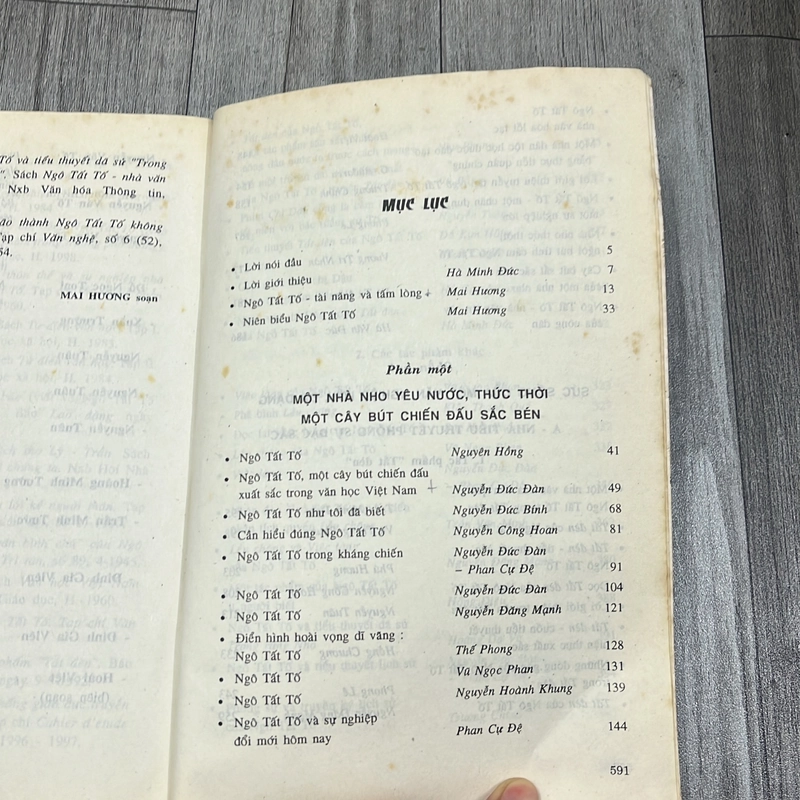 Tố và tiểu thuyết dã sử "Trong
". Sách Ngô Tất Tố - nhà văn
Nxb Văn hóa Thông tin,
ão thành Ngô Tất Tố không
ạp chí Văn nghệ, số 6 (52),
54.
MAI HƯƠNG soạn
MỤC LỤC
• Lời nói đầu 5
• Lời giới thiệu Hà Minh Đức 7
• Ngô Tất Tố - tài năng và tấm lòng Mai Hương 13
• Niên biểu Ngô Tất Tố Mai Hương 33
Phần một
MỘT NHÀ NHO YÊU NƯỚC, THỨC THỜI
MỘT CÂY BÚT CHIẾN ĐẤU SẮC BÉN
• Ngô Tất Tố Nguyên Hồng 41
• Ngô Tất Tố, một cây bút chiến đấu
xuất sắc trong văn học Việt Nam Nguyễn Đức Đàn 49
• Ngô Tất Tố như tôi đã biết Nguyễn Đức Bính 68
• Cần hiểu đúng Ngô Tất Tố Nguyễn Công Hoan 81
• Ngô Tất Tố trong kháng chiến Nguyễn Đức Đàn
– Phan Cự Đệ 91
• Ngô Tất Tố Nguyễn Đức Đàn 104
• Ngô Tất Tố Nguyễn Đăng Mạnh 121
• Điển hình hoài vọng dĩ vãng :
Ngô Tất Tố Thế Phong 128
• Ngô Tất Tố Vũ Ngọc Phan 131
• Ngô Tất Tố Nguyễn Hoành Khung 139
• Ngô Tất Tố và sự nghiệp
đổi mới hôm nay Phan Cự Đệ 144
591